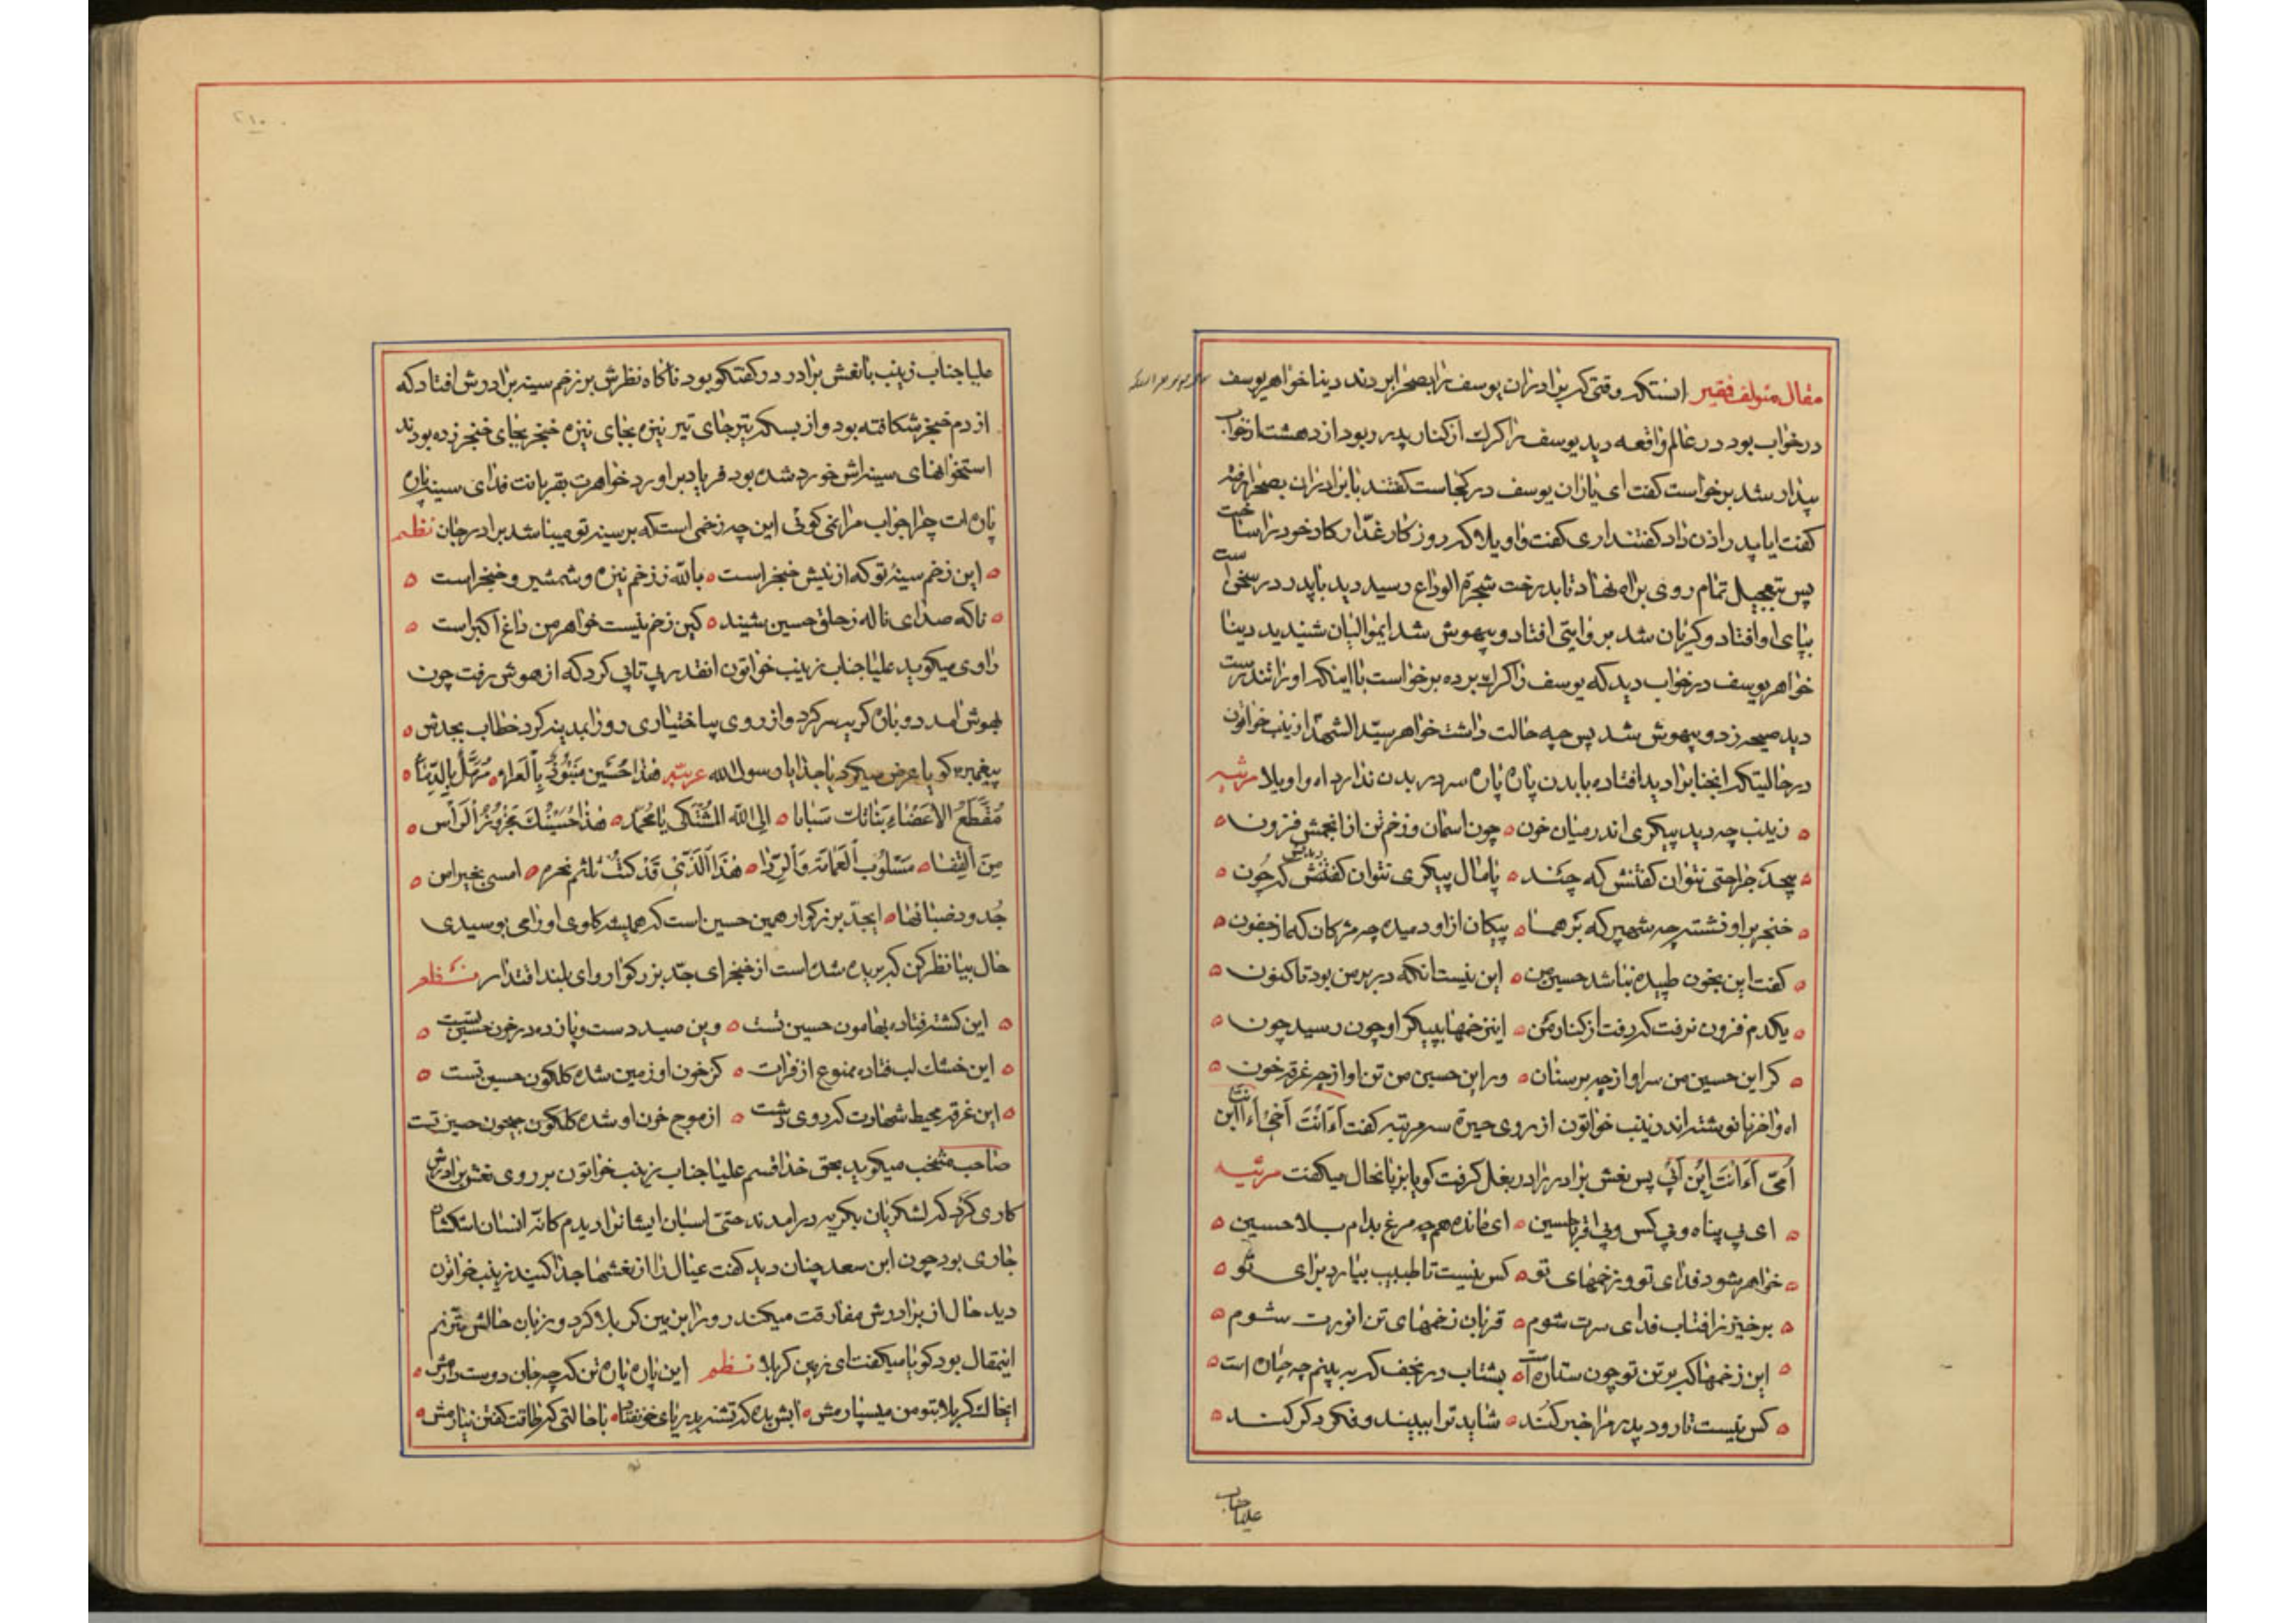 مقال مؤلف فقیر اینستکه وقتی که برادران یوسف را بصحرا بردند دینا خواهر یوسف
در خواب بود در عالم واقعه دید یوسف را کرك از کنار پدر ربود از دهشت از خواب
بیدار شد برخواست کفت ای یاران یوسف در کجاست کفتند با برادران بصحرا رفته
کفت ایا پدر اذن داد کفتند اری کفت واویلا که روزکار غدّار کار خود را ساخت
پس بتعجیل تمام روی براه نهاد تا بدرخت شجرة الوداع رسید دید با پدر در سخن است
بپای او افتاد و کریان شد بروایتی افتاد و بیهوش شد ایموالیان شنیدید دینا
خواهر یوسف در خواب دید که یوسف را کرك برده برخواست با اینکه او را تندرست
دید صیحه زد و بیهوش شد پس چه حالت داشت خواهر سیّد الشهدا زینب خواتون
در حالیتکه انجنابرا دید افتاده با بدن پاره پاره سر در بدن ندارد اه واویلا مرثیه
زینب چه دید پیکری اندر میان خون چون اسمان و زخم تن از انجمش فزون
بیحد جراحتی نتوان کفتنش که چند پامال پیکری نتوان کفتنش که چون
خنجر بر او نشسته چه شهپر که بر هما پیکان از او دمیده چه مژکان که از جفون
کفت این بخون طپیده نباشد حسین من این نیست انکه در بر من بود تا کنون
یکدم فزون نرفت که رفت از کنار من این زخمها بپیکر او چون رسید چون
کر این حسین من سر او از چه بر سنان ور این حسین من تن او از چه غرقه خون
اه واخزنا نوشته اند زینب خواتون از روی حیرة سه مرتبه کفت ءَاَنْتَ اَخی ءَاَنْتَ ابن
اُمّی ءَاَنْتَ اِبْن اَبی پس نعش برادر را در بغل کرفت کویا بزبانحال میکفت مرثیه
ای بی پناه و بی کس و بی اقربا حسین ای مانده همچه مرغ بدام بلا حسین
خواهر شود فدای تو و زخمهای تو کس نیست تا طبیب بیارد برای تو
برخیز ز افتاب فدای سرت شوم قربان زخمهای تن انورت شوم
این زخمها که بر تن تو چون ستاره است بشتاب در نجف که به بینم چه چاره است
کس نیست تا رود پدرمرا خبر کند شاید ترا ببیند و فکر دکر کند
علیاجناب
علیاجناب زینب با نعش برادر در کفتکو بود ناکاه نظرش بر زخم سینه برادرش افتاد که
از دم خنجر شکافته بود و از بسکه تیر جای تیر نیزه بجای نیزه خنجر بجای خنجر زده بودند
استخوانهای سینه اش خورد شده بود فریاد براورد خواهرت بقربانت فدای سینه پاره
پاره ات چرا جواب مرا نمی کوئی این چه زخمی است که بر سینه تو میباشد برادر جان نظم
این زخم سینهٔ تو که از نیش خنجر است بالله ز زخم نیزه و شمشیر و خنجر است
ناکه صدای ناله ز حلق حسین شنید کین زخم نیست خواهر من داغ اکبر است
راوی میکوید علیاجناب زینب خواتون انقدر بی تابی کرد که از هوش رفت چون
بهوش امد دوباره کریه سر کرد و از روی بیاختیاری رو را بمدینه کرد خطاب بجدش
پیغمبر کویا عرض میکرد یا جداه یا رسول الله عربیّه هٰذا حُسَیْن مَنْبُوذٌ بِالْعَراء مُرَمَّلٌ بِالدِّمٰاءِ
مُقَطَّعُ الاَعْضٰاءِ بَنٰاتُكَ سَبٰایا اِلَی الله المُشْتَکی یٰا مُحَمَّد هٰذا حُسَیْنُكَ مَجْزُوزُ الرَّأس
مِنَ القَفٰا مَسْلُوبُ العَمٰامَةِ وَالرِّدٰا هٰذَا الَّذی قَدْ کُنْتُ تلثم نحره امسی نحیرا من
حُدود ضبائها ایجدّ بزرکوار همین حسین است که همیشه کلوی او را می بوسیدی
حال بیا نظر کن که بریده شده است از خنجر ای جدّ بزرکوار و ای بلند اقتدار نظم
این کشته فتاده بهامون حسین تست وین صید دست و پا زده در خون حسین تست
این خشك لب فتاده ممنوع از فرات کز خون او زمین شده کلکون حسین تست
این غرقه محیط شهادت که روی دشت از موج خون او شده کلکون جیحون حسین تست
صاحب منتخب میکوید بحق خدا قسم علیاجناب زینب خواتون بر روی نعش برادرش
کاری کرد که لشکریان بکریه در امدند حتی اسبان ایشانرا دیدم که اشك
جاری بود چون ابن سعد چنان دید کفت عیال را از نعشها جدا کنید زینب خواتون
دید حال از برادرش مفارقت میکند رو را بزمین کربلا کرد و زبان حالش مترنم
اینمقال بود کویا میکفت ای زمین کربلا نظم این پاره پاره تن که چه جان دوست دارمش
ایخاك کربلا بتو من میسپارمش ابش بده که تشنه بدریای خون فتاد با حالتی که طاقت کفتن نیارمش